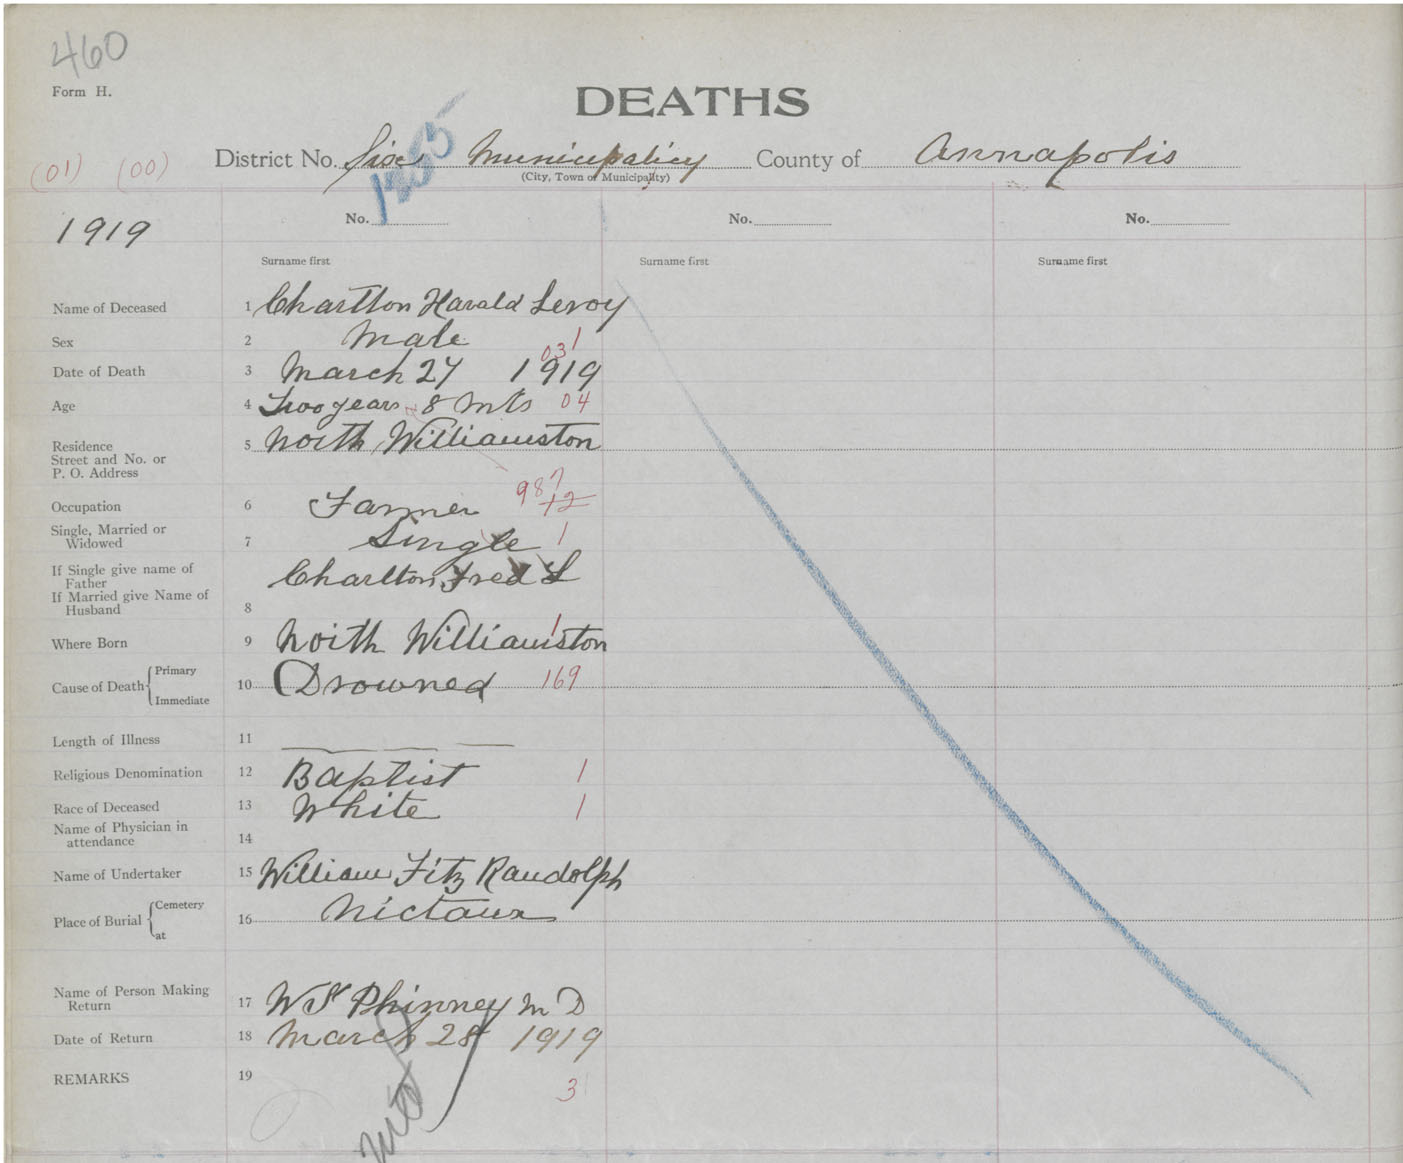 460
Form H.
DEATHS
District No. Six Municipality County of Annapolis
(City, Town or Municipality)
(01) (00)
1255
1919
No. No. No.
Surname first Surname first Surname first
Name of Deceased 1 Charlton Harald Leroy
Sex 2 Male 1
Date of Death 3 March 27 1919 03
Age 4 Two years & 8 mts 04
Residence
Street and No. or
P. O. Address 5 North Williamston
Occupation 6 Farmer 987 12
Single, Married or
Widowed 7 Single 1
If Single give name of
Father Charlton Fred L
If Married give Name of
Husband 8
Where Born 9 North Williamston 1
Cause of Death Primary
Immediate 10 Drowned 169
Length of Illness 11
Religious Denomination 12 Baptist 1
Race of Deceased 13 White 1
Name of Physician in
attendance 14
Name of Undertaker 15 William Fitz Randolph
Place of Burial Cemetery
at 16 Nictaux
Name of Person Making
Return 17 W Phinney M D
Date of Return 18 March 28 1919
REMARKS 19
3